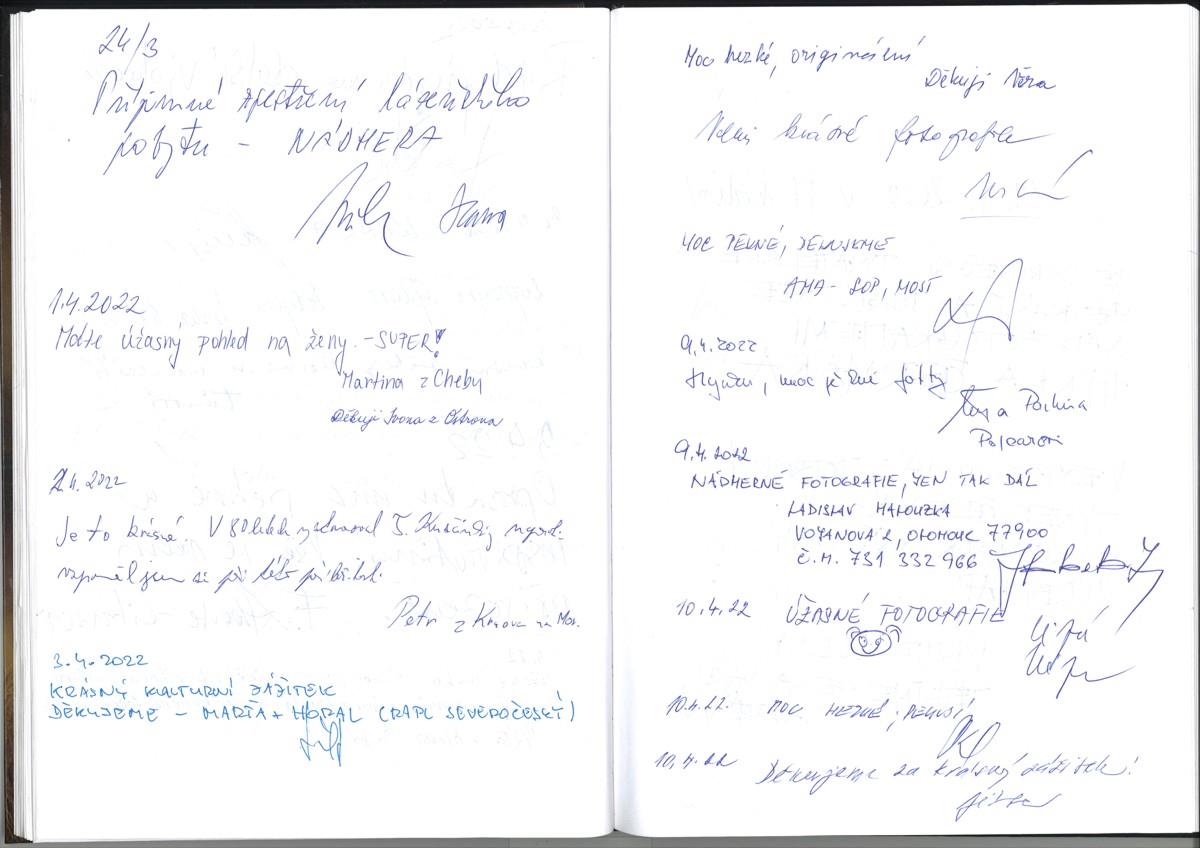 24/3
Příjemné zpestření lázeňského
pobytu - NÁDHERA
Hana
1.4.2022
Máte úžasný pohled na ženy. - SUPER!
Martina z Chebu
Děkuji Ivona z Ostrova
2.4.2022
Je to krásné. V 80 letech J.
vzpomněl jsem si při této příležit.
Petr z
3.4.2022
KRÁSNÝ KULTURNÍ ZÁŽITEK
DĚKUJEME - MARŤA + HORAL (RAPL SEVEROČESKÝ)
Moc hezké, originální
Děkuji Věra
Velmi krásné fotografie
MOC PĚKNÉ, DĚKUJEME
AMA - SOP, MOST
9.4.2022
moc fotky
9.4.2022
NÁDHERNÉ FOTOGRAFIE, JEN TAK DÁL
LADISLAV HALOUZKA
VOJANOVA 2, OLOMOUC 77900
Č.M. 731 332 966
10.4.22 ÚŽASNÉ FOTOGRAFIE
10.4.22. MOC HEZKÉ, DĚKUJI
10.4.22 Děkujeme za krásný zážitek!